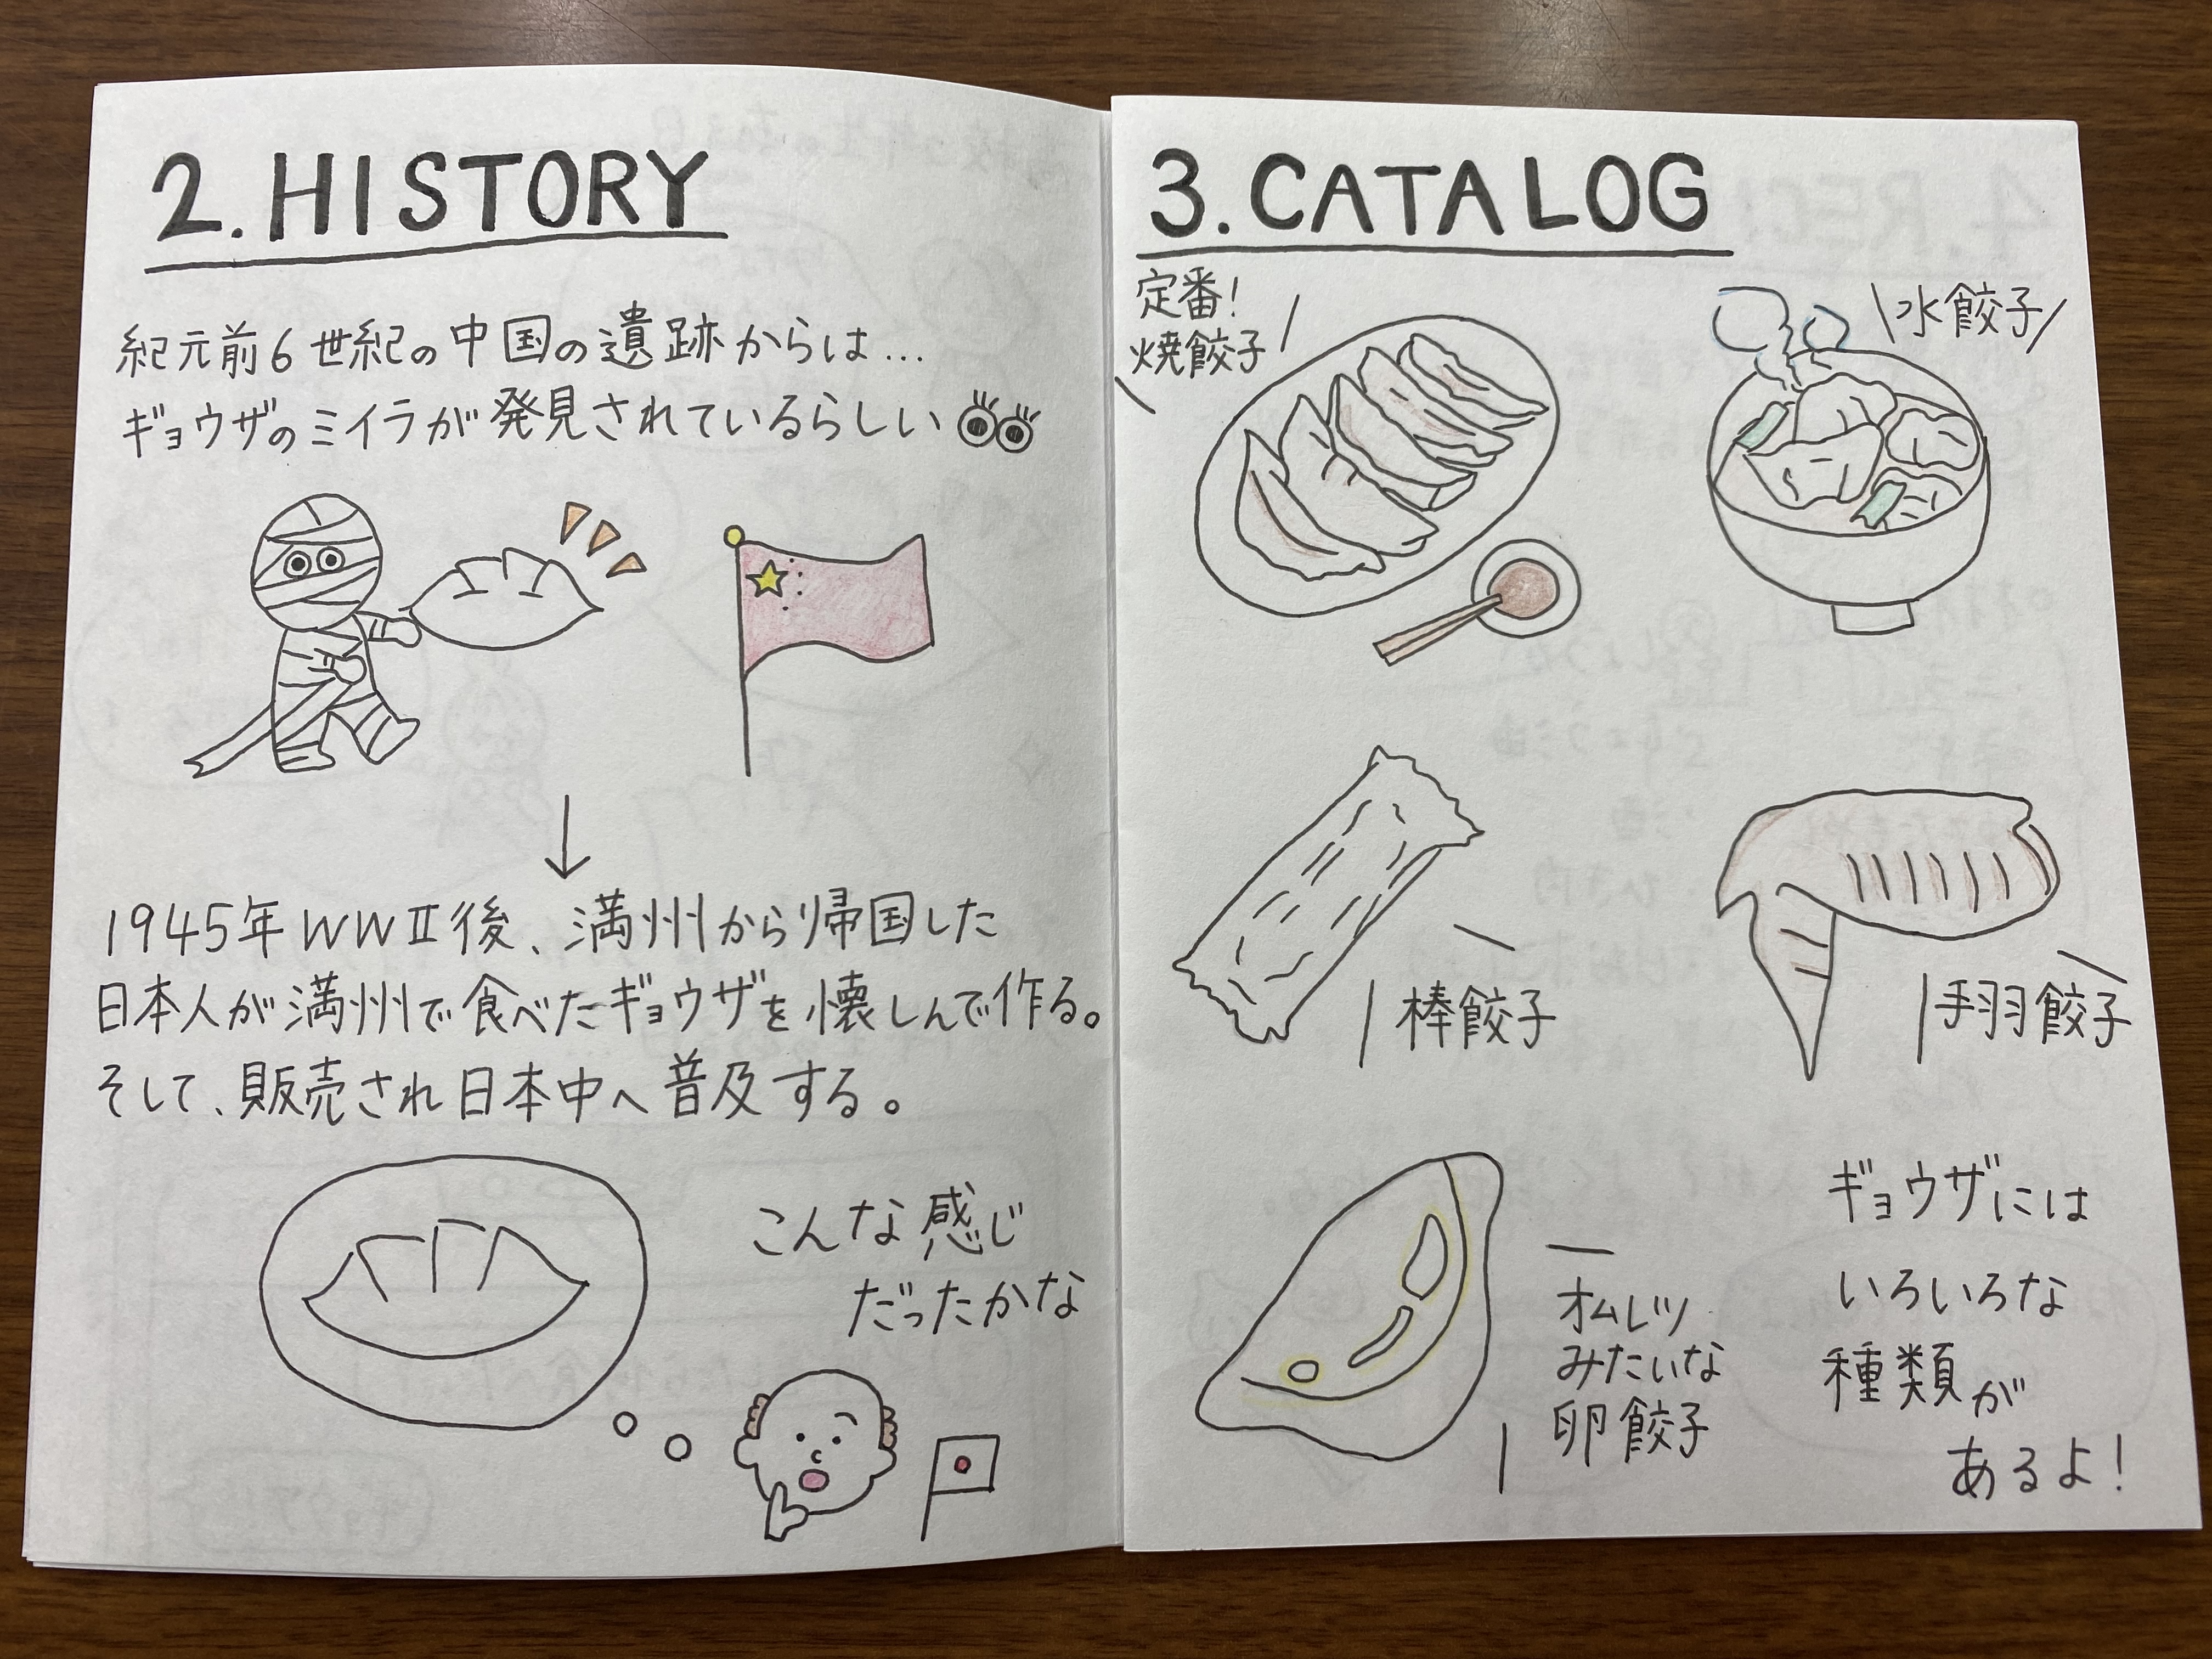 2. HISTORY
紀元前6世紀の中国の遺跡からは…
ギョウザのミイラが発見されているらしい
↓
1945年WWⅡ後、満州から帰国した
日本人が満州で食べたギョウザを懐しんで作る。
そして、販売され日本中へ普及する。
こんな感じ
だったかな
3. CATALOG
定番!
焼餃子
水餃子
棒餃子
手羽餃子
オムレツ
みたいな
卵餃子
ギョウザには
いろいろな
種類が
あるよ!